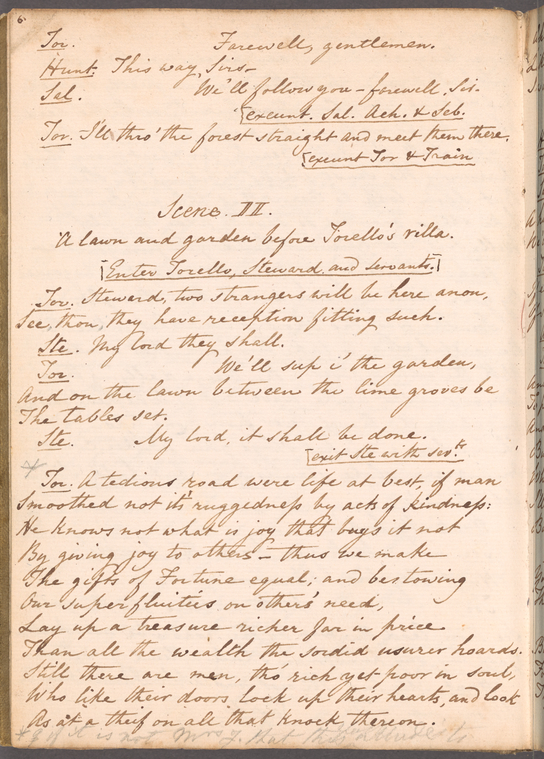 6.
Tor. Farewell, gentlemen.
Hunt. This way, Sirs—
Sal. We'll follow you – farewell, Sir.
[exeunt. Sal. Ach. & Seb.
Tor. I'll thro' the forest straight and meet them there.
[exeunt Tor & Train
Scene. III.
A lawn and garden before Torello's villa.
[Enter Torello, Steward, and servants.]
Tor. Steward, two strangers will be here anon,
See, thou, they have reception fitting such.
Ste. My lord they shall.
Tor. We'll sup i' the garden,
And on the lawn between the lime groves be
The tables set.
Ste. My lord, it shall be done.
[exit Ste with servts.
Tor. A tedious road were life at best, if man
Smoothed not it's ruggedness by acts of kindness:
He knows not what is joy that buys it not
By giving joy to others – thus we make
The gifts of Fortune equal; and bestowing
Our superfluities on others' need,
Lay up a treasure richer far in price
Than all the wealth the sordid usurer hoards.
Still there are men, tho' rich yet poor in soul,
Who like their doors lock up their hearts, and look
As at a theif on all that knock thereon.
if it is not Mrs J. that this alludes to